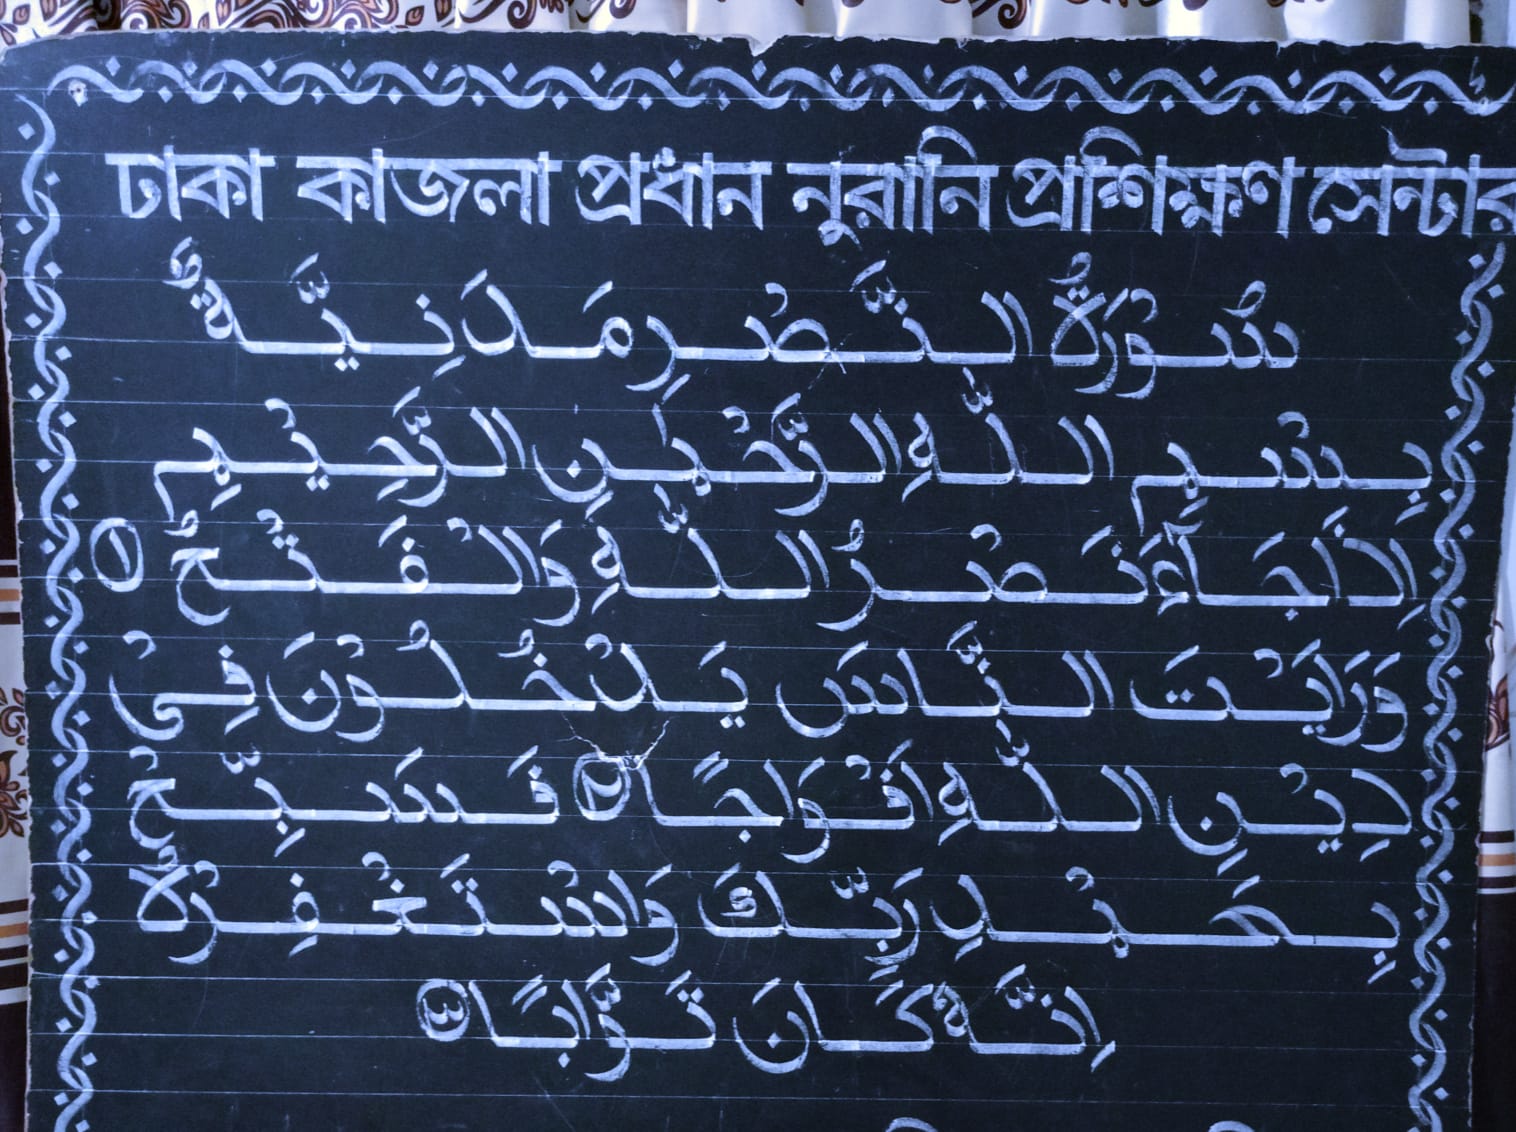 ঢাকা কাজলা প্রধান নুরানি প্রশিক্ষণ সেন্টার
سُوْرَةُ النَّصْرِ مَدَنِيَّةٌ
بِسْمِ اللّٰهِ الرَّحْمٰنِ الرَّحِيْمِ
اِذَا جَآءَ نَصْرُ اللّٰهِ وَالْفَتْحُ ①
وَرَاَيْتَ النَّاسَ يَدْخُلُوْنَ فِىْ
دِيْنِ اللّٰهِ اَفْوَاجًا ② فَسَبِّحْ
بِحَمْدِ رَبِّكَ وَاسْتَغْفِرْهُ
اِنَّهٗ كَانَ تَوَّابًا ③